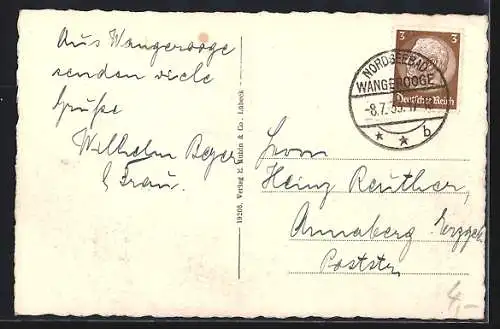 Aus Wangerooge
senden viele
Grüße
Wilhelm Beyer
& Frau.
19205. Verlag E. & Co., Lübeck
3 3
Deutsches Reich
NORDSEEBAD
WANGEROOGE
-8.7.
b
Herrn
Heinz Reuther,
Annaberg Erzgeb.
Poststr.
4,-